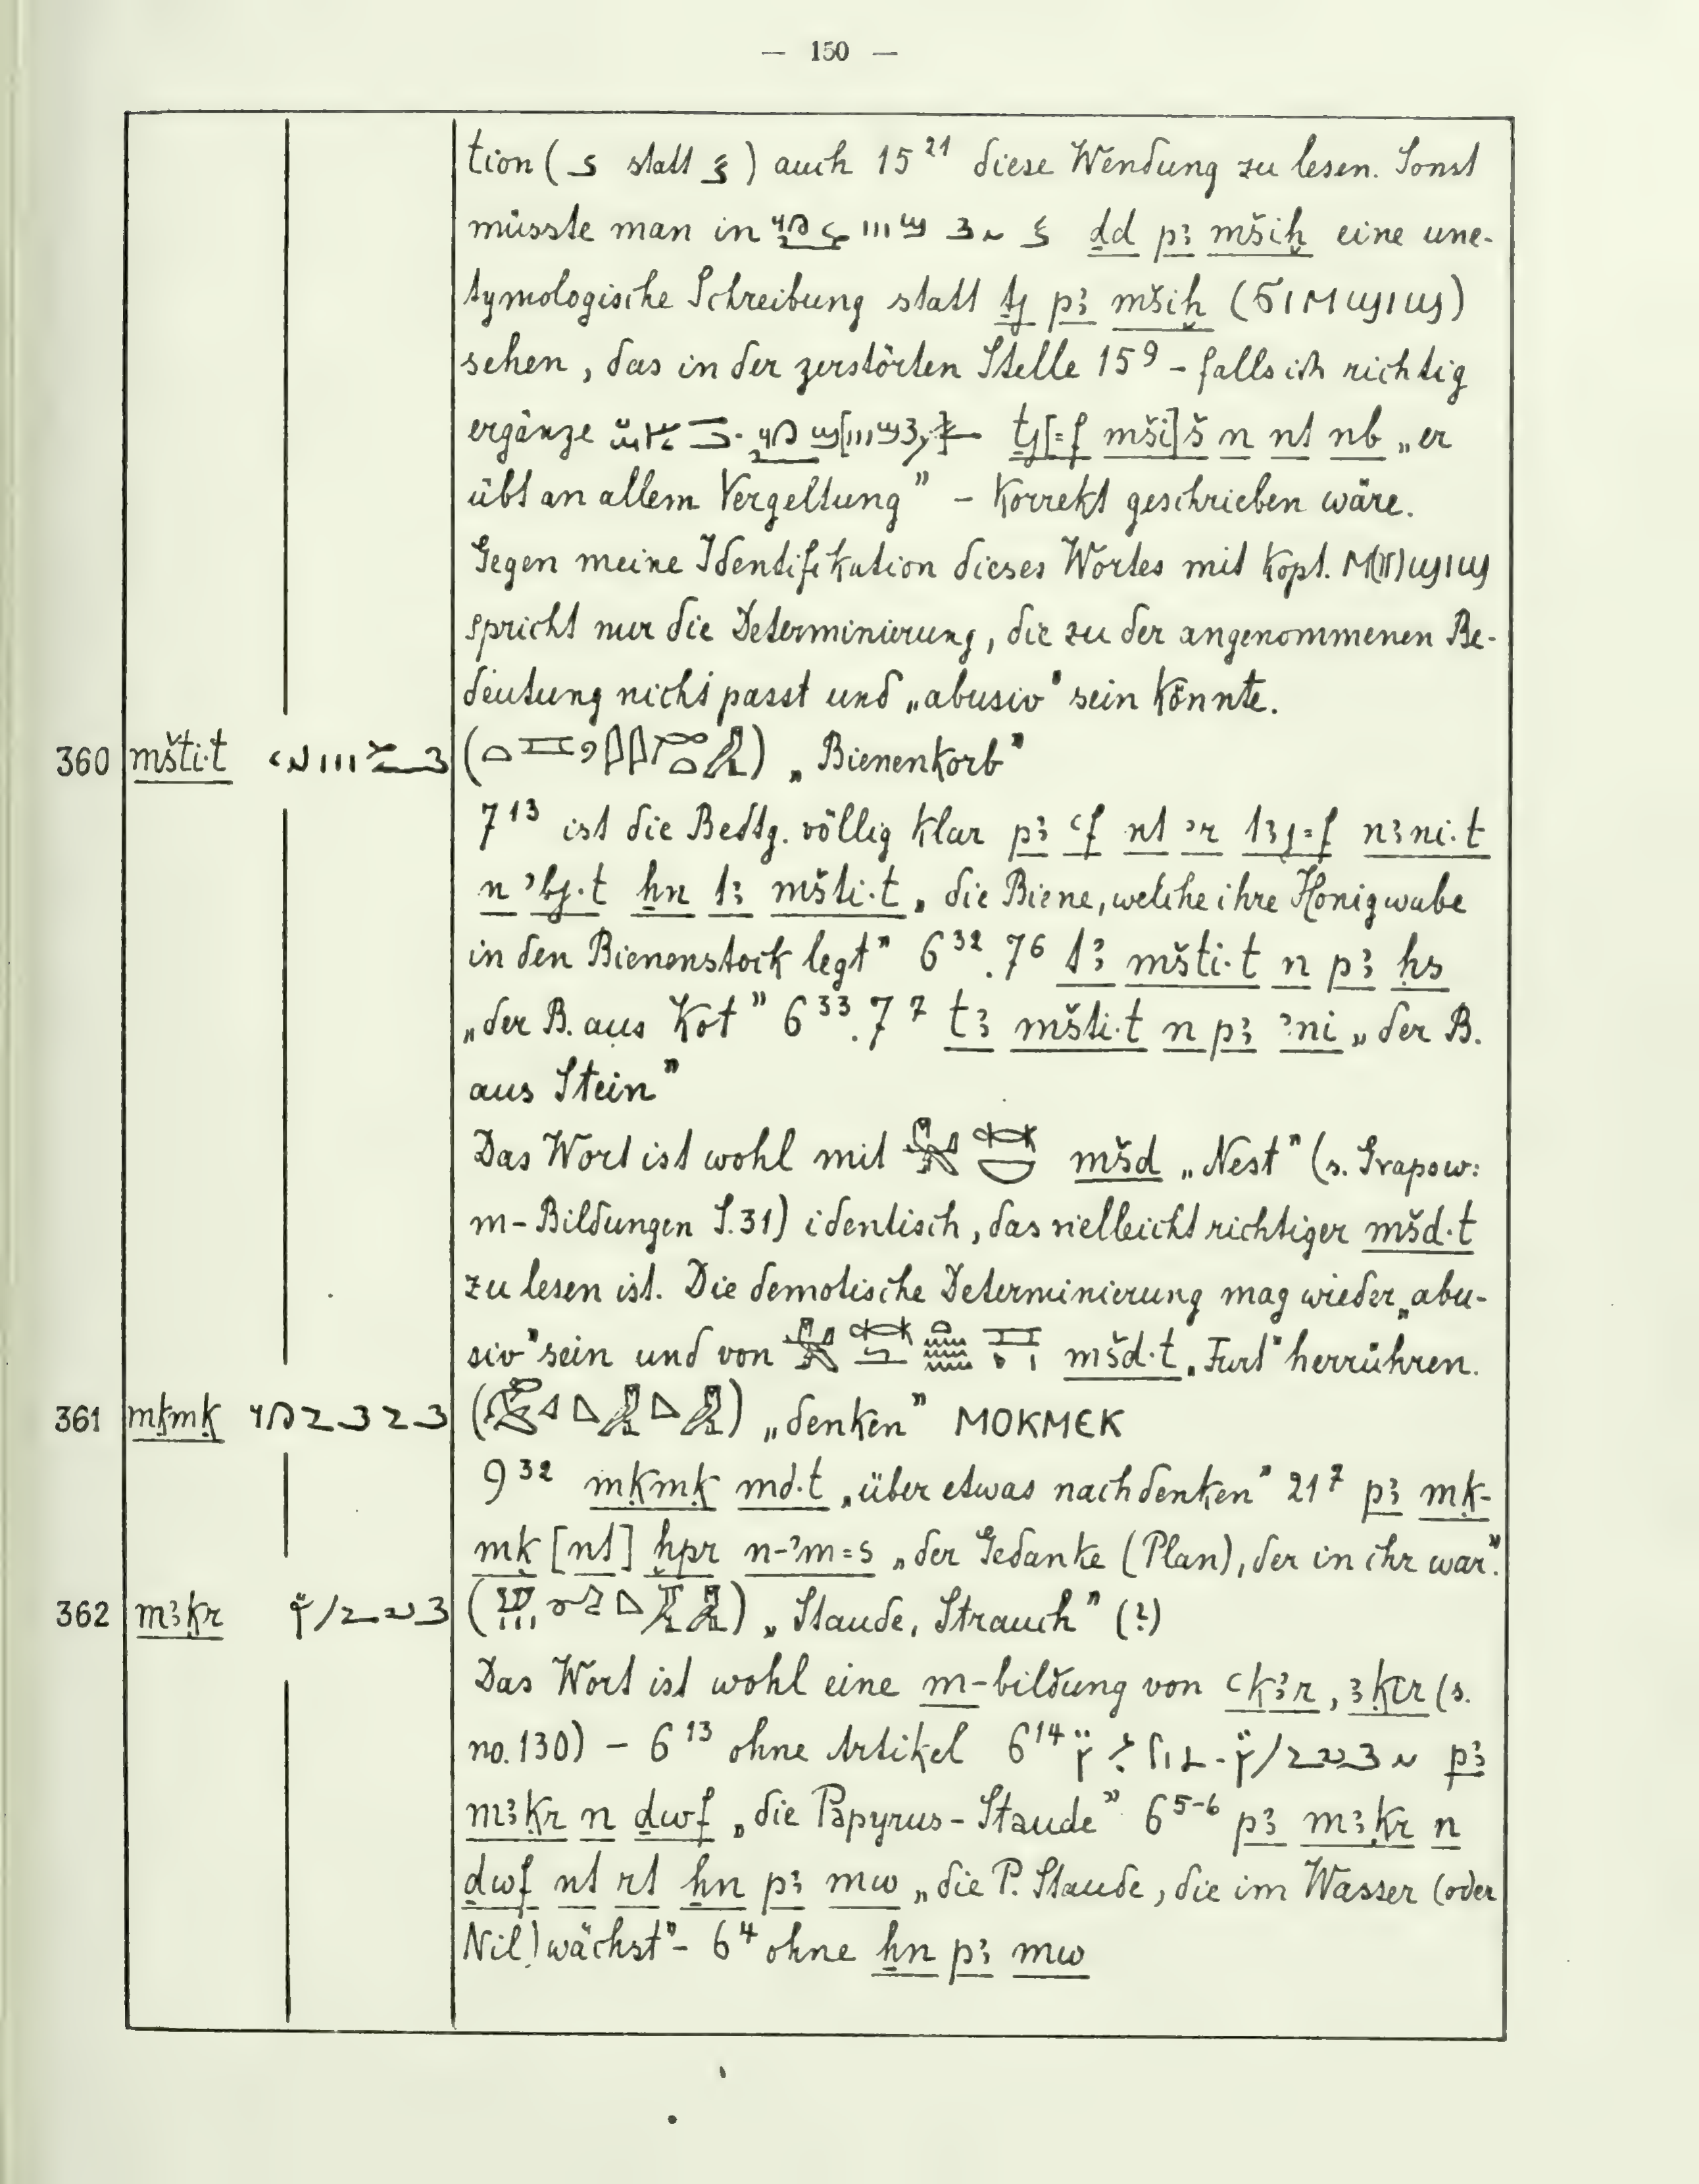 — 150 —
tion ( statt ) auch 15²¹ diese Wendung zu lesen. Sonst
müsste man in ḏd pꜣ mšiḫ eine une-
tymologische Schreibung statt ṯj pꜣ mšiḫ (ϭⲓⲙϣⲓϣ)
sehen, das in der zerstörten Stelle 15⁹ – falls ich richtig
ergänze ṯj[=f mši]š n nt nb „er
übt an allem Vergeltung” – korrekt geschrieben wäre.
Gegen meine Identifikation dieses Wortes mit kopt. ϣⲓϣ
spricht nur die Determinierung, die zu der angenommenen Be-
deutung nicht passt und „abusiv” sein könnte.
360 mšti·t ( ) „Bienenkorb”
7¹³ ist die Bedtg. völlig klar pꜣ ꜥf nt ꜣr tꜣj=f nꜣni·t
n ꜣbj·t ẖn tꜣ mšti·t „die Biene, welche ihre Honigwabe
in den Bienenstock legt” 6³².7⁶ tꜣ mšti·t n pꜣ ḥs
„der B. aus Kot” 6³³.7⁷ tꜣ mšti·t n pꜣ ꜣni „der B.
aus Stein”
Das Wort ist wohl mit mšd „Nest” (s. Grapow:
m-Bildungen S.31) identisch, das vielleicht richtiger mšd·t
zu lesen ist. Die demotische Determinierung mag wieder „abu-
siv” sein und von mšd·t „Furt” herrühren.
361 mḳmḳ ( ) „denken” ⲙⲟⲕⲙⲉⲕ
9³² mḳmḳ md·t „über etwas nachdenken” 21⁷ pꜣ mḳ-
mḳ [nt] ḫpr n-ꜣm=s „der Gedanke (Plan), der in ihr war.”
362 mꜣḳr ( ) „Staude, Strauch” (?)
Das Wort ist wohl eine m-bildung von ꜥḳꜣr, (s.
no. 130) – 6¹³ ohne Artikel 6¹⁴ pꜣ
mꜣḳr n ḏwf „die Papyrus-Staude” 6⁵⁻⁶ pꜣ mꜣḳr n
ḏwf nt rt ẖn pꜣ mw „die P. Staude, die im Wasser (oder
Nil) wächst” – 6⁴ ohne ẖn pꜣ mw